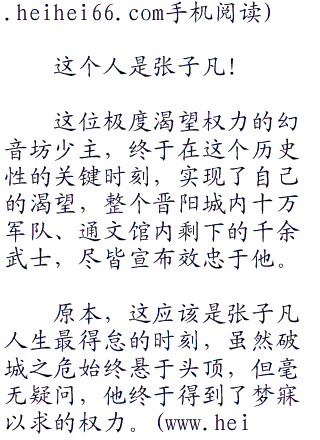 .heihei66.com手机阅读)
这个人是张子凡!
这位极度渴望权力的幻
音坊少主，终于在这个历史
性的关键时刻，实现了自己
的渴望，整个晋阳城内十万
军队、通文馆内剩下的千余
武士，尽皆宣布效忠于他。
原本，这应该是张子凡
人生最得怠的时刻，虽然破
城之危始终悬于头顶，但毫
无疑问，他终于得到了梦寐
以求的权力。(www.hei